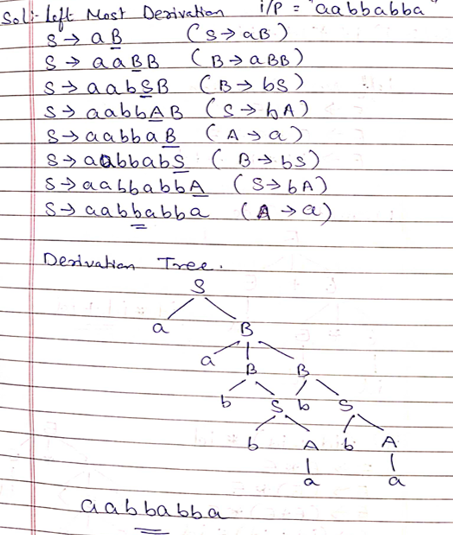 Sol:- Left Most Derivation i/p = "aabbabba"
S → aB (S → aB)
S → aaBB (B → aBB)
S → aabSB (B → bS)
S → aabbAB (S → bA)
S → aabbaB (A → a)
S → aabbabS (B → bS)
S → aabbabbA (S → bA)
S → aabbabba (A → a)
Derivation Tree.
S
a B
a B B
b S b S
b A b A
a a
aabbabba